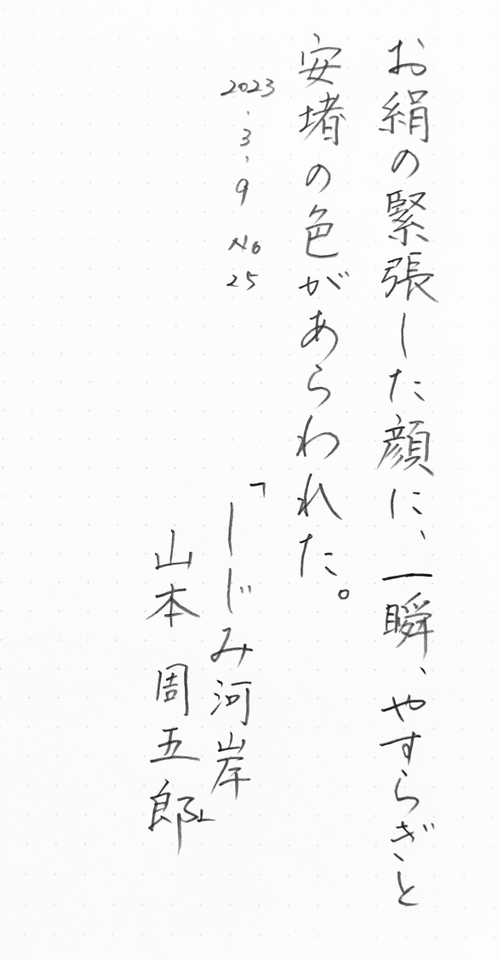 お絹の緊張した顔に、一瞬、やすらぎと
安堵の色があらわれた。
2023.3.9 No 25
「しじみ河岸」
山本 周五郎